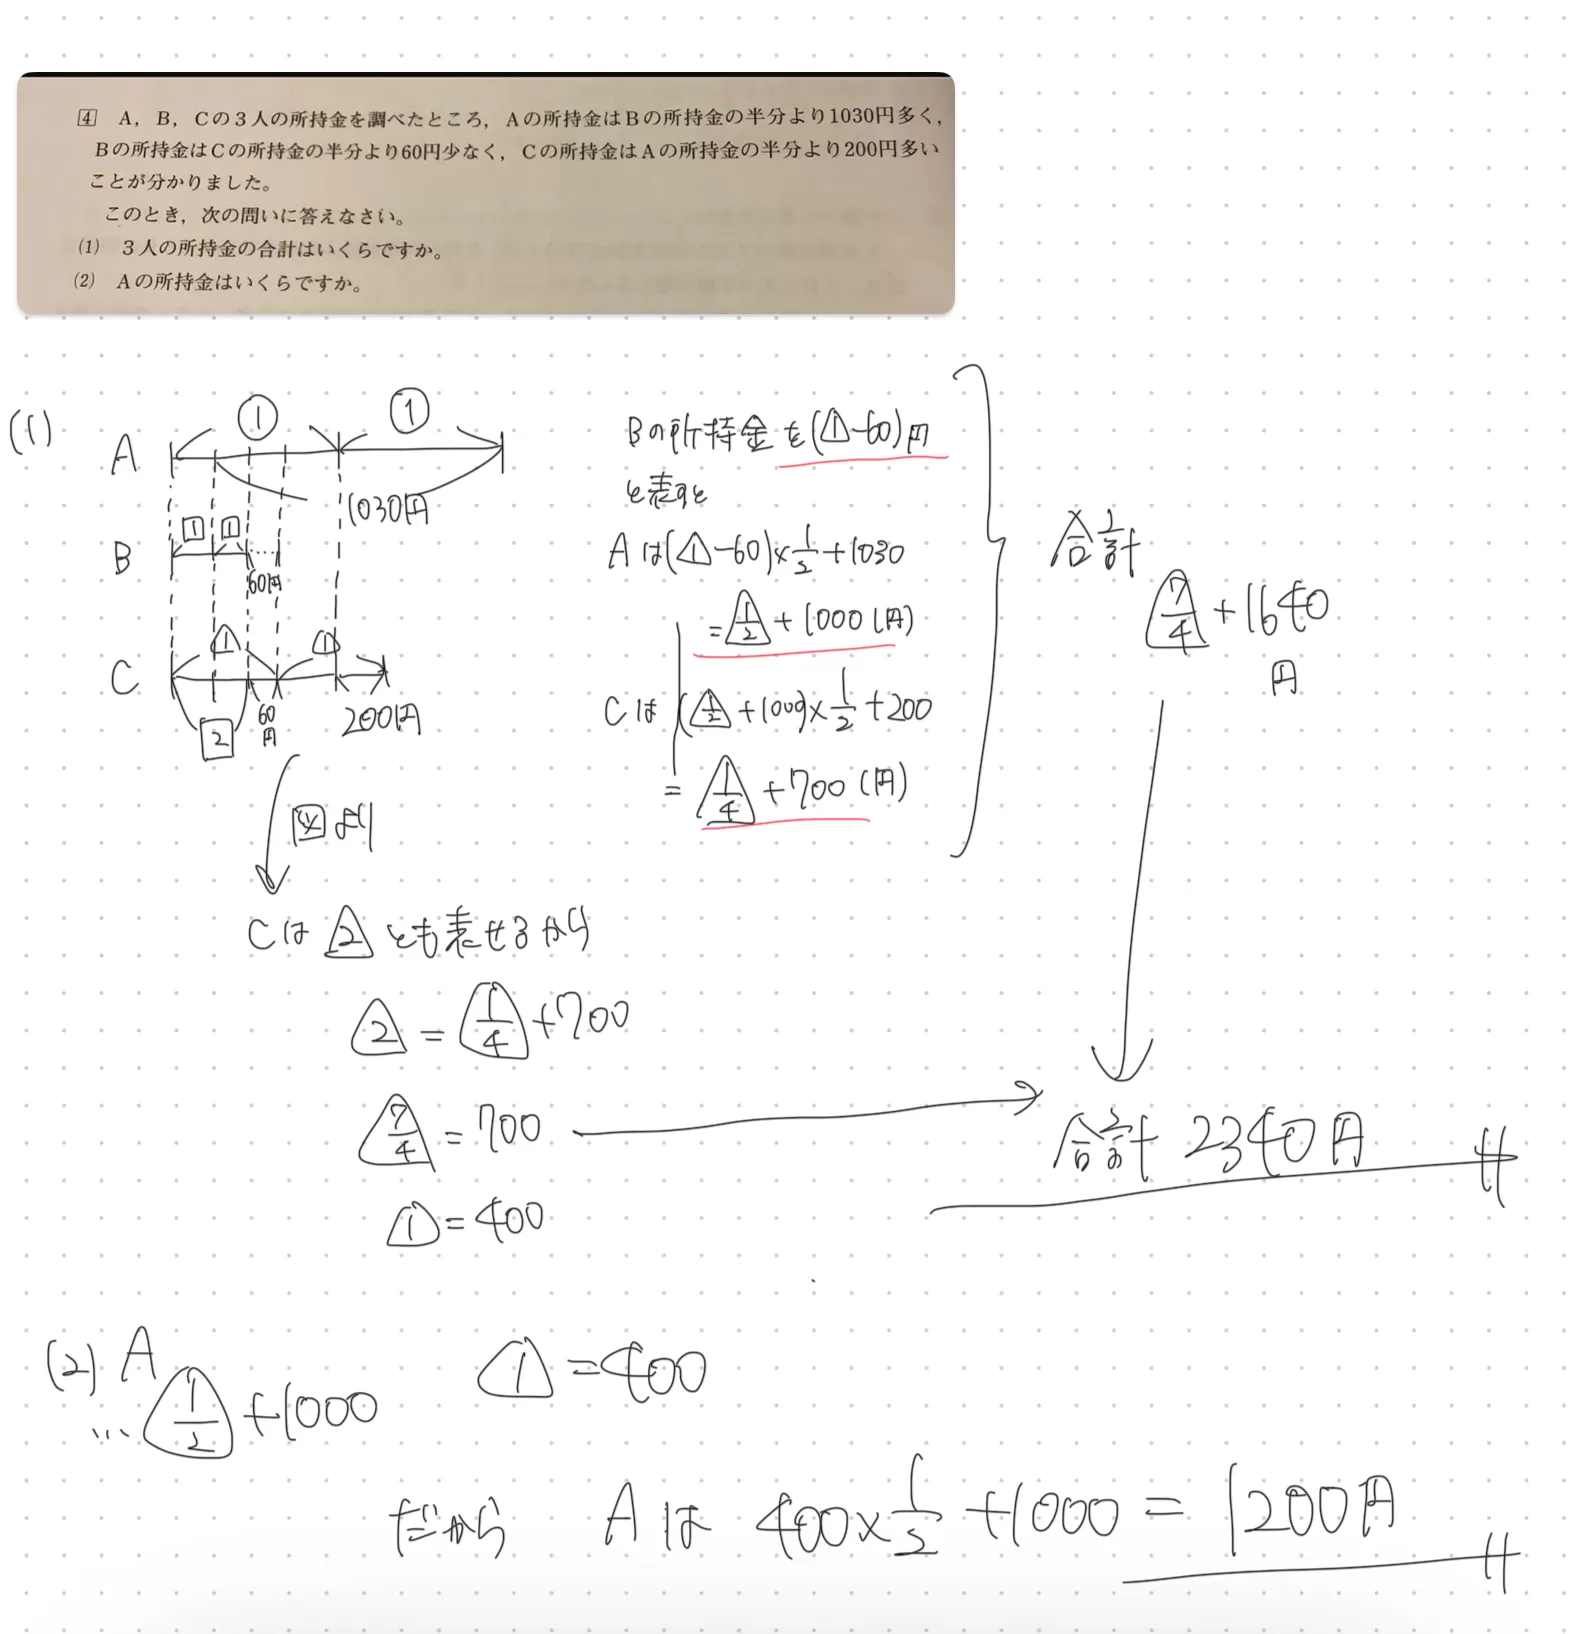 4 A，B，Cの3人の所持金を調べたところ，Aの所持金はBの所持金の半分より1030円多く，
Bの所持金はCの所持金の半分より60円少なく，Cの所持金はAの所持金の半分より200円多い
ことが分かりました。
このとき，次の問いに答えなさい。
(1) 3人の所持金の合計はいくらですか。
(2) Aの所持金はいくらですか。
(1)
① ①
A
1030円
1 1
B
60円
△1 △1
C
2 60円 200円
図より
Bの所持金を(△1-60)円
と表すと
Aは(△1-60)×1/2+1030
=△1/2+1000(円)
Cは(△1/2+1000)×1/2+200
=△1/4+700(円)
合計
△7/4+1640
円
Cは△2とも表せるから
△2=△1/4+700
△7/4=700
△1=400
合計 2340円
(2) A
…△1/2+1000
△1=400
だから Aは 400×1/2+1000=1200円